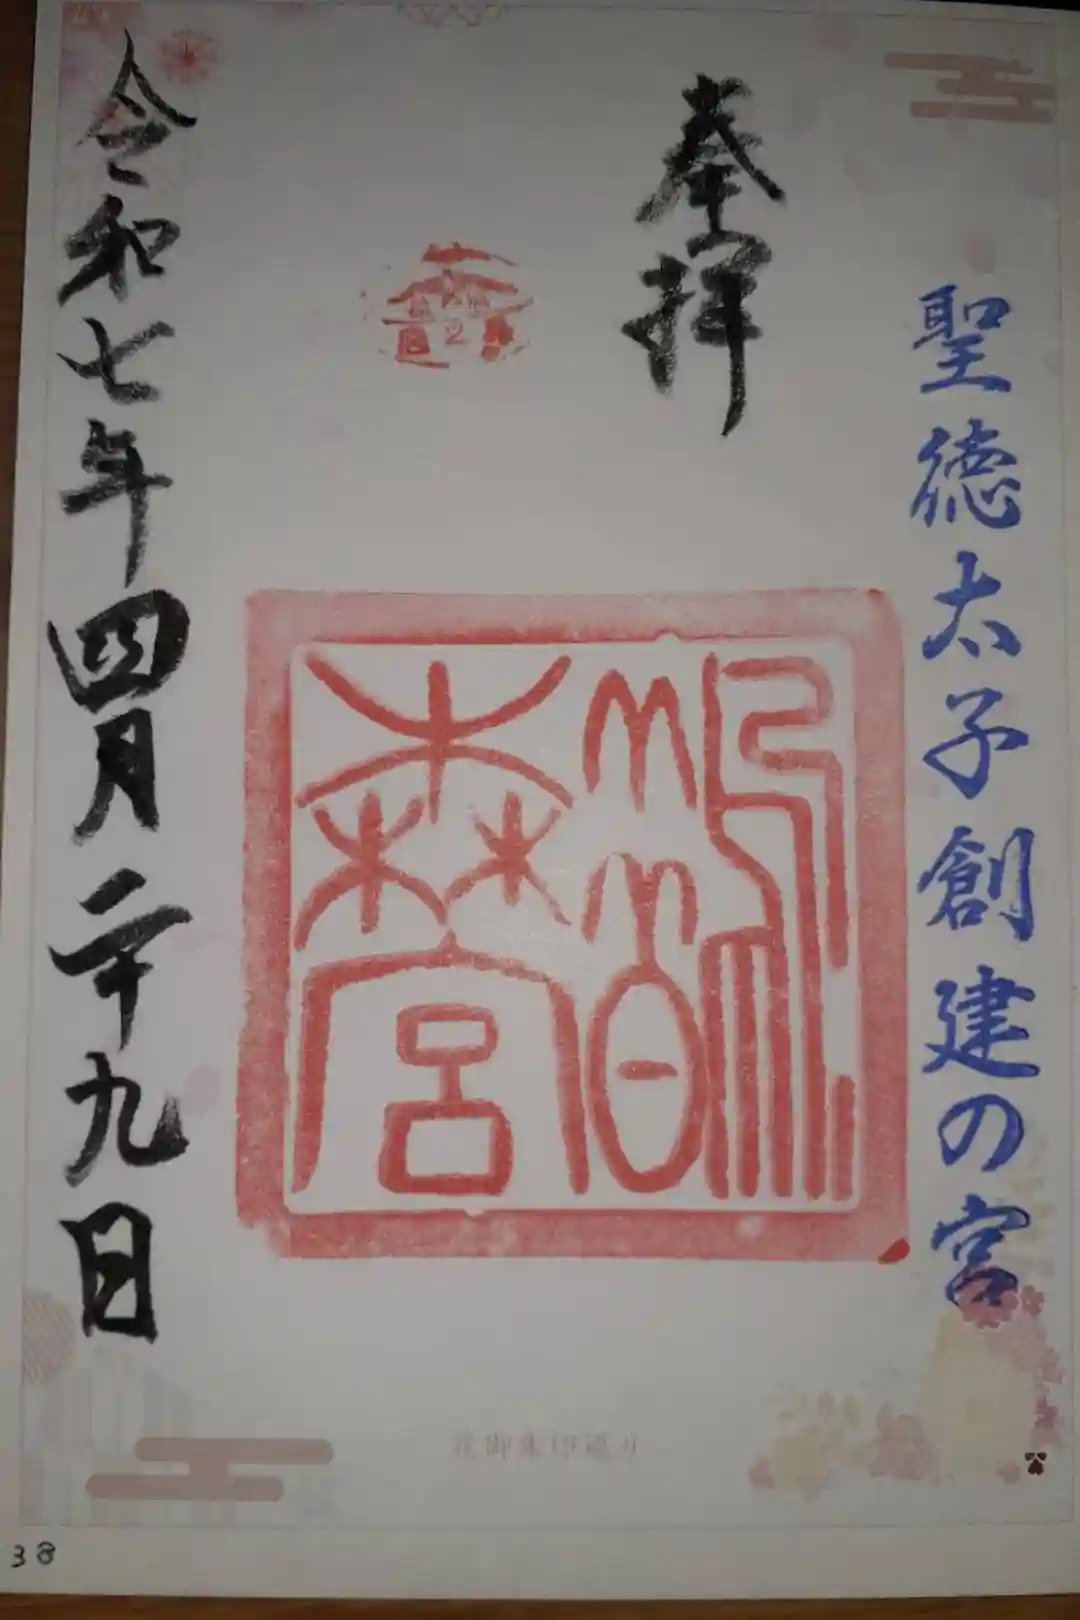 聖徳太子創建の宮
奉拝
鵲森宮
令和七年四月二十九日
花御朱印巡り
38